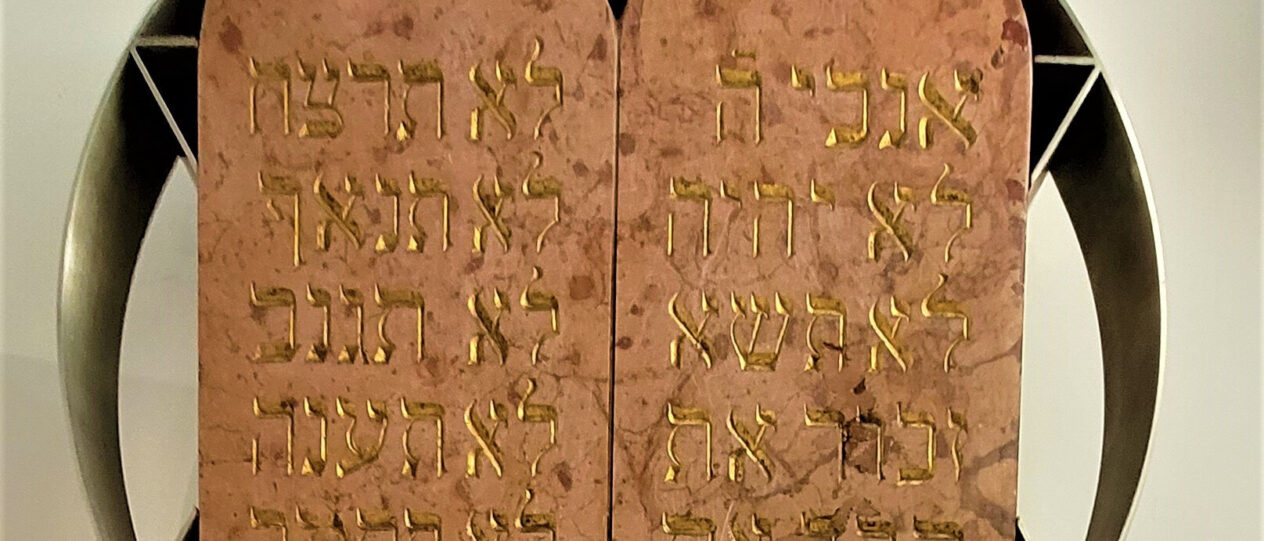 אנכי ה
לא יהיה
לא תשא
זכור את
לא תרצח
לא תנאף
לא תגנב
לא תענה